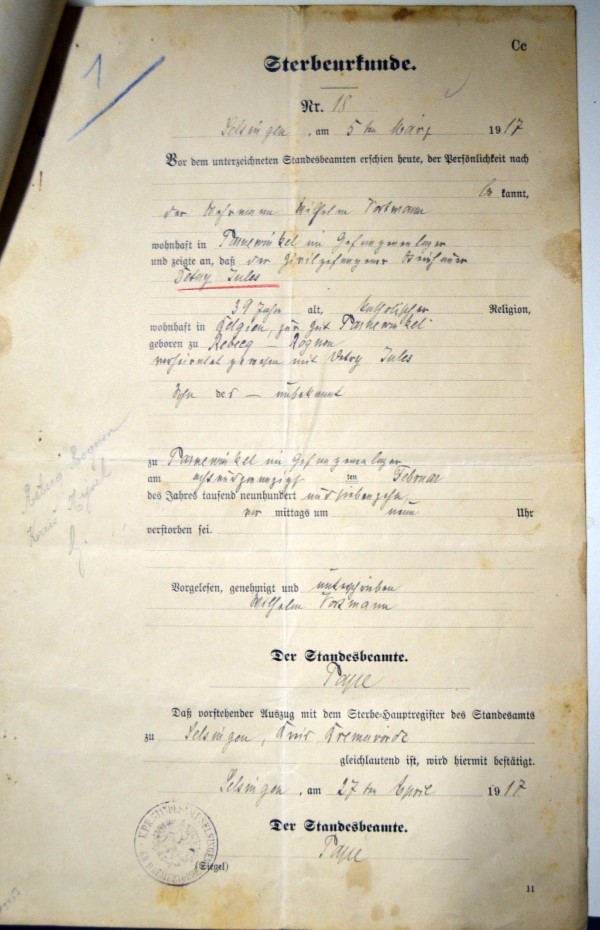 1
Cc
Sterbeurkunde.
Nr. 18
Selsingen, am 5ten März 1917
Vor dem unterzeichneten Standesbeamten erschien heute, der Persönlichkeit nach
be kannt,
der Wehrmann Wilhelm Vortmann
wohnhaft in Parnewinkel im Gefangenenlager
und zeigte an, daß der Zivilgefangene
Detry Jules
39 Jahre alt, katholischer Religion,
wohnhaft in Belgien, zur Zeit Parnewinkel
geboren zu Rebecq - Rognon
verheiratet gewesen mit Detry Jules
Sohn des — unbekannt
zu Parnewinkel im Gefangenenlager
am achtundzwanzigsten Februar
des Jahres tausend neunhundert und siebenzehn
vor mittags um neun Uhr
verstorben sei.
Vorgelesen, genehmigt und unterschrieben
Wilhelm Vortmann
Der Standesbeamte.
Pape
Daß vorstehender Auszug mit dem Sterbe-Hauptregister des Standesamts
zu Selsingen, Kreis Bremervörde
gleichlautend ist, wird hiermit bestätigt.
Selsingen, am 27ten April 1917
Der Standesbeamte.
Pape
(Siegel)
11
Rebecq Rognon